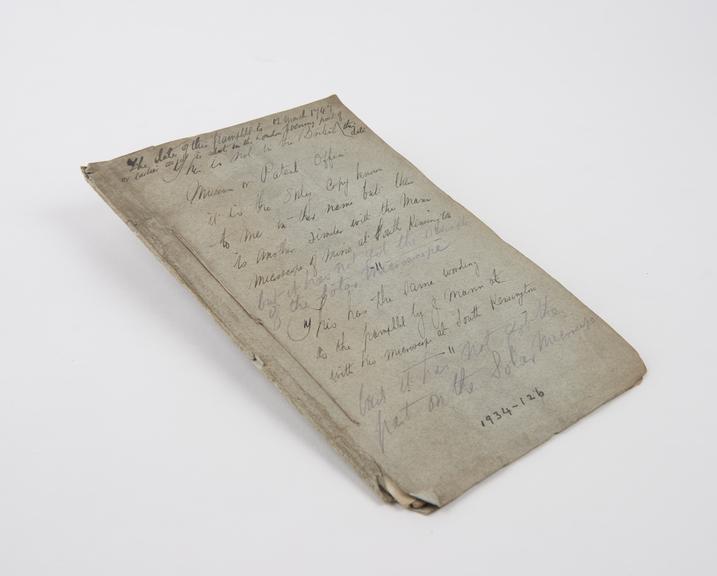 The date of this Pamphlet is 12 March 1747
or earlier as it is in the London Evening Post of
this date
This is not in the British
Museum or Patent Office
it is the only copy known
to me in this name but there
is another similar with the Mann
microscope of mine at South Kensington
but it has not got the
of the Solar Microscope
"This has the same wording
as the pamphlet by J Mann at
with his microscope at South Kensington
but it has" not got the
part on the Solar Microscope
1934-126